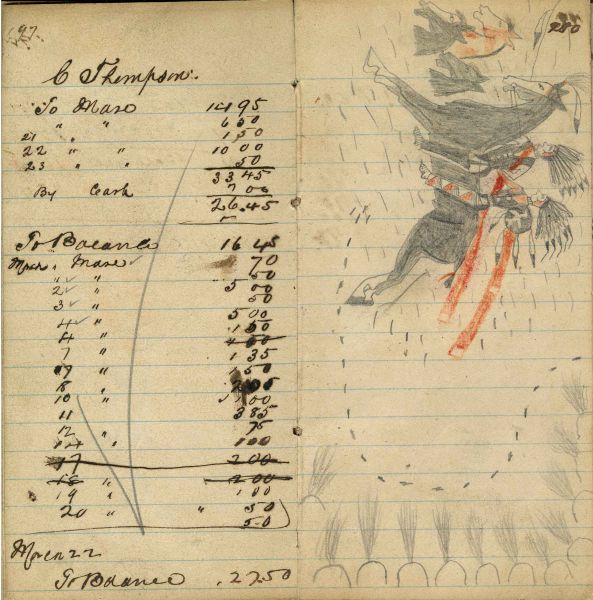 297
C Thompson
To Mdse 14 95
" " 6 50
21 " 1 50
22 " " 10 00
23 " " 50
33 45
By Cash 7 00
26.45
To Balance 16 45
" Mdse 70
" " 50
2 " 5 00
3 " 50
4 " 5 00
1 50
8 "
7 " 1 35
9 " 1 50
8 "
10 " 00
11 3 85
12 " 75
14 " 1 00
17 2 00
18 " 2 00
19 " 1 00
20 " " 50
50
March 22
To Balance 27.50
280